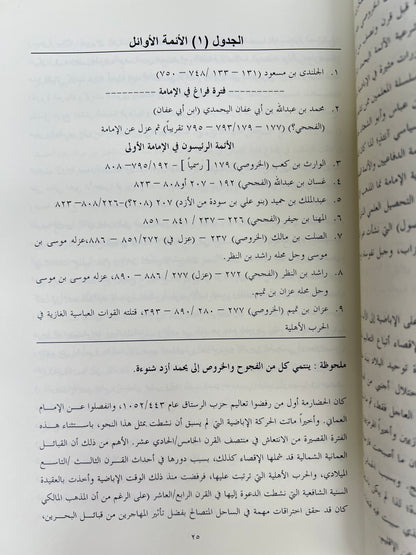 الجدول (١) الأئمة الأوائل
١. الجلندى بن مسعود (١٣١ – ١٣٣ /٧٤٨ – ٧٥٠)
---------- فترة فراغ في الإمامة ----------
٢. محمد بن عبدالله بن أبي عفان اليحمدي (ابن أبي عفان)
(الفجحي؟) (١٧٧ – ١٧٩/٧٩٣ – ٧٩٥ تقريباً) تم عزل عن الإمامة
الأئمة الرئيسون في الإمامة الأولى
٣. الوارث بن كعب (الخروصي) ١٧٩ [ رسمياً ] – ١٩٢/٧٩٥ – ٨٠٨
٤. غسان بن عبدالله (الفجحي) ١٩٢ – ٢٠٧ أو٨٠٨ – ٨٢٣
٥. عبدالملك بن حميد (بنو علي بن سودة من الأزد) ٢٠٧ (٢٠٨؟)–٢٢٦/٨٢٣– ٨٠٨
٦. المهنا بن جيفر (الفجحي) ٢٢٦ – ٢٣٧ / ٨٤١ – ٨٥١
٧. الصلت بن مالك (الخروصي) ٢٣٧ – (عزل في) ٢٧٢/٨٥١ – ٨٨٦،عزله موسى بن
موسى وحل محله راشد بن النظر.
٨. راشد بن النظر (الفجحي) ٢٧٢ – (عزل) ٢٧٧ / ٨٨٦ – ٨٩٠، عزله موسى بن موسى
وحل محله عزان بن تميم.
٩. عزان بن تميم (الخروصي) ٢٧٧ – ٢٨٠ /٨٩٠ – ٣٩٣، قتلته القوات العباسية الغازية في
الحرب الأهلية
ملحوظة : ينتمي كل من الفجوح والخروص إلى يحمد أزد شنوءة.
كان الحضارمة أول من رفضوا تعاليم حزب الرستاق عام ١٠٥٢/٤٤٣، وانفصلوا عن الإمام
العماني. وأخيراً ماتت الحركة الإباضية التي لم يسبق أن نشطت بمثل هذا النحو، باستثناء هذه
الفترة القصيرة من الانتعاش في منتصف القرن الخامس/الحادي عشر. الأهم من ذلك أن القبائل
العمانية الشمالية قد شملها الإقصاء كذلك، بسبب دورها في أحداث القرن الثالث /التاسع
الميلادي، والحرب الأهلية التي ترتبت عليها، فرفضت منذ ذلك الوقت الإباضية وأخذت بالعقيدة
السنية الشافعية التي نشطت الدعوة إليها في القرن الرابع/العاشر (على الرغم من أن المذهب المالكي
كان قد حقق اختراقات مهمة في الساحل المتصالح بفضل تأثير المهاجرين من قبائل البحرين،
٢٥